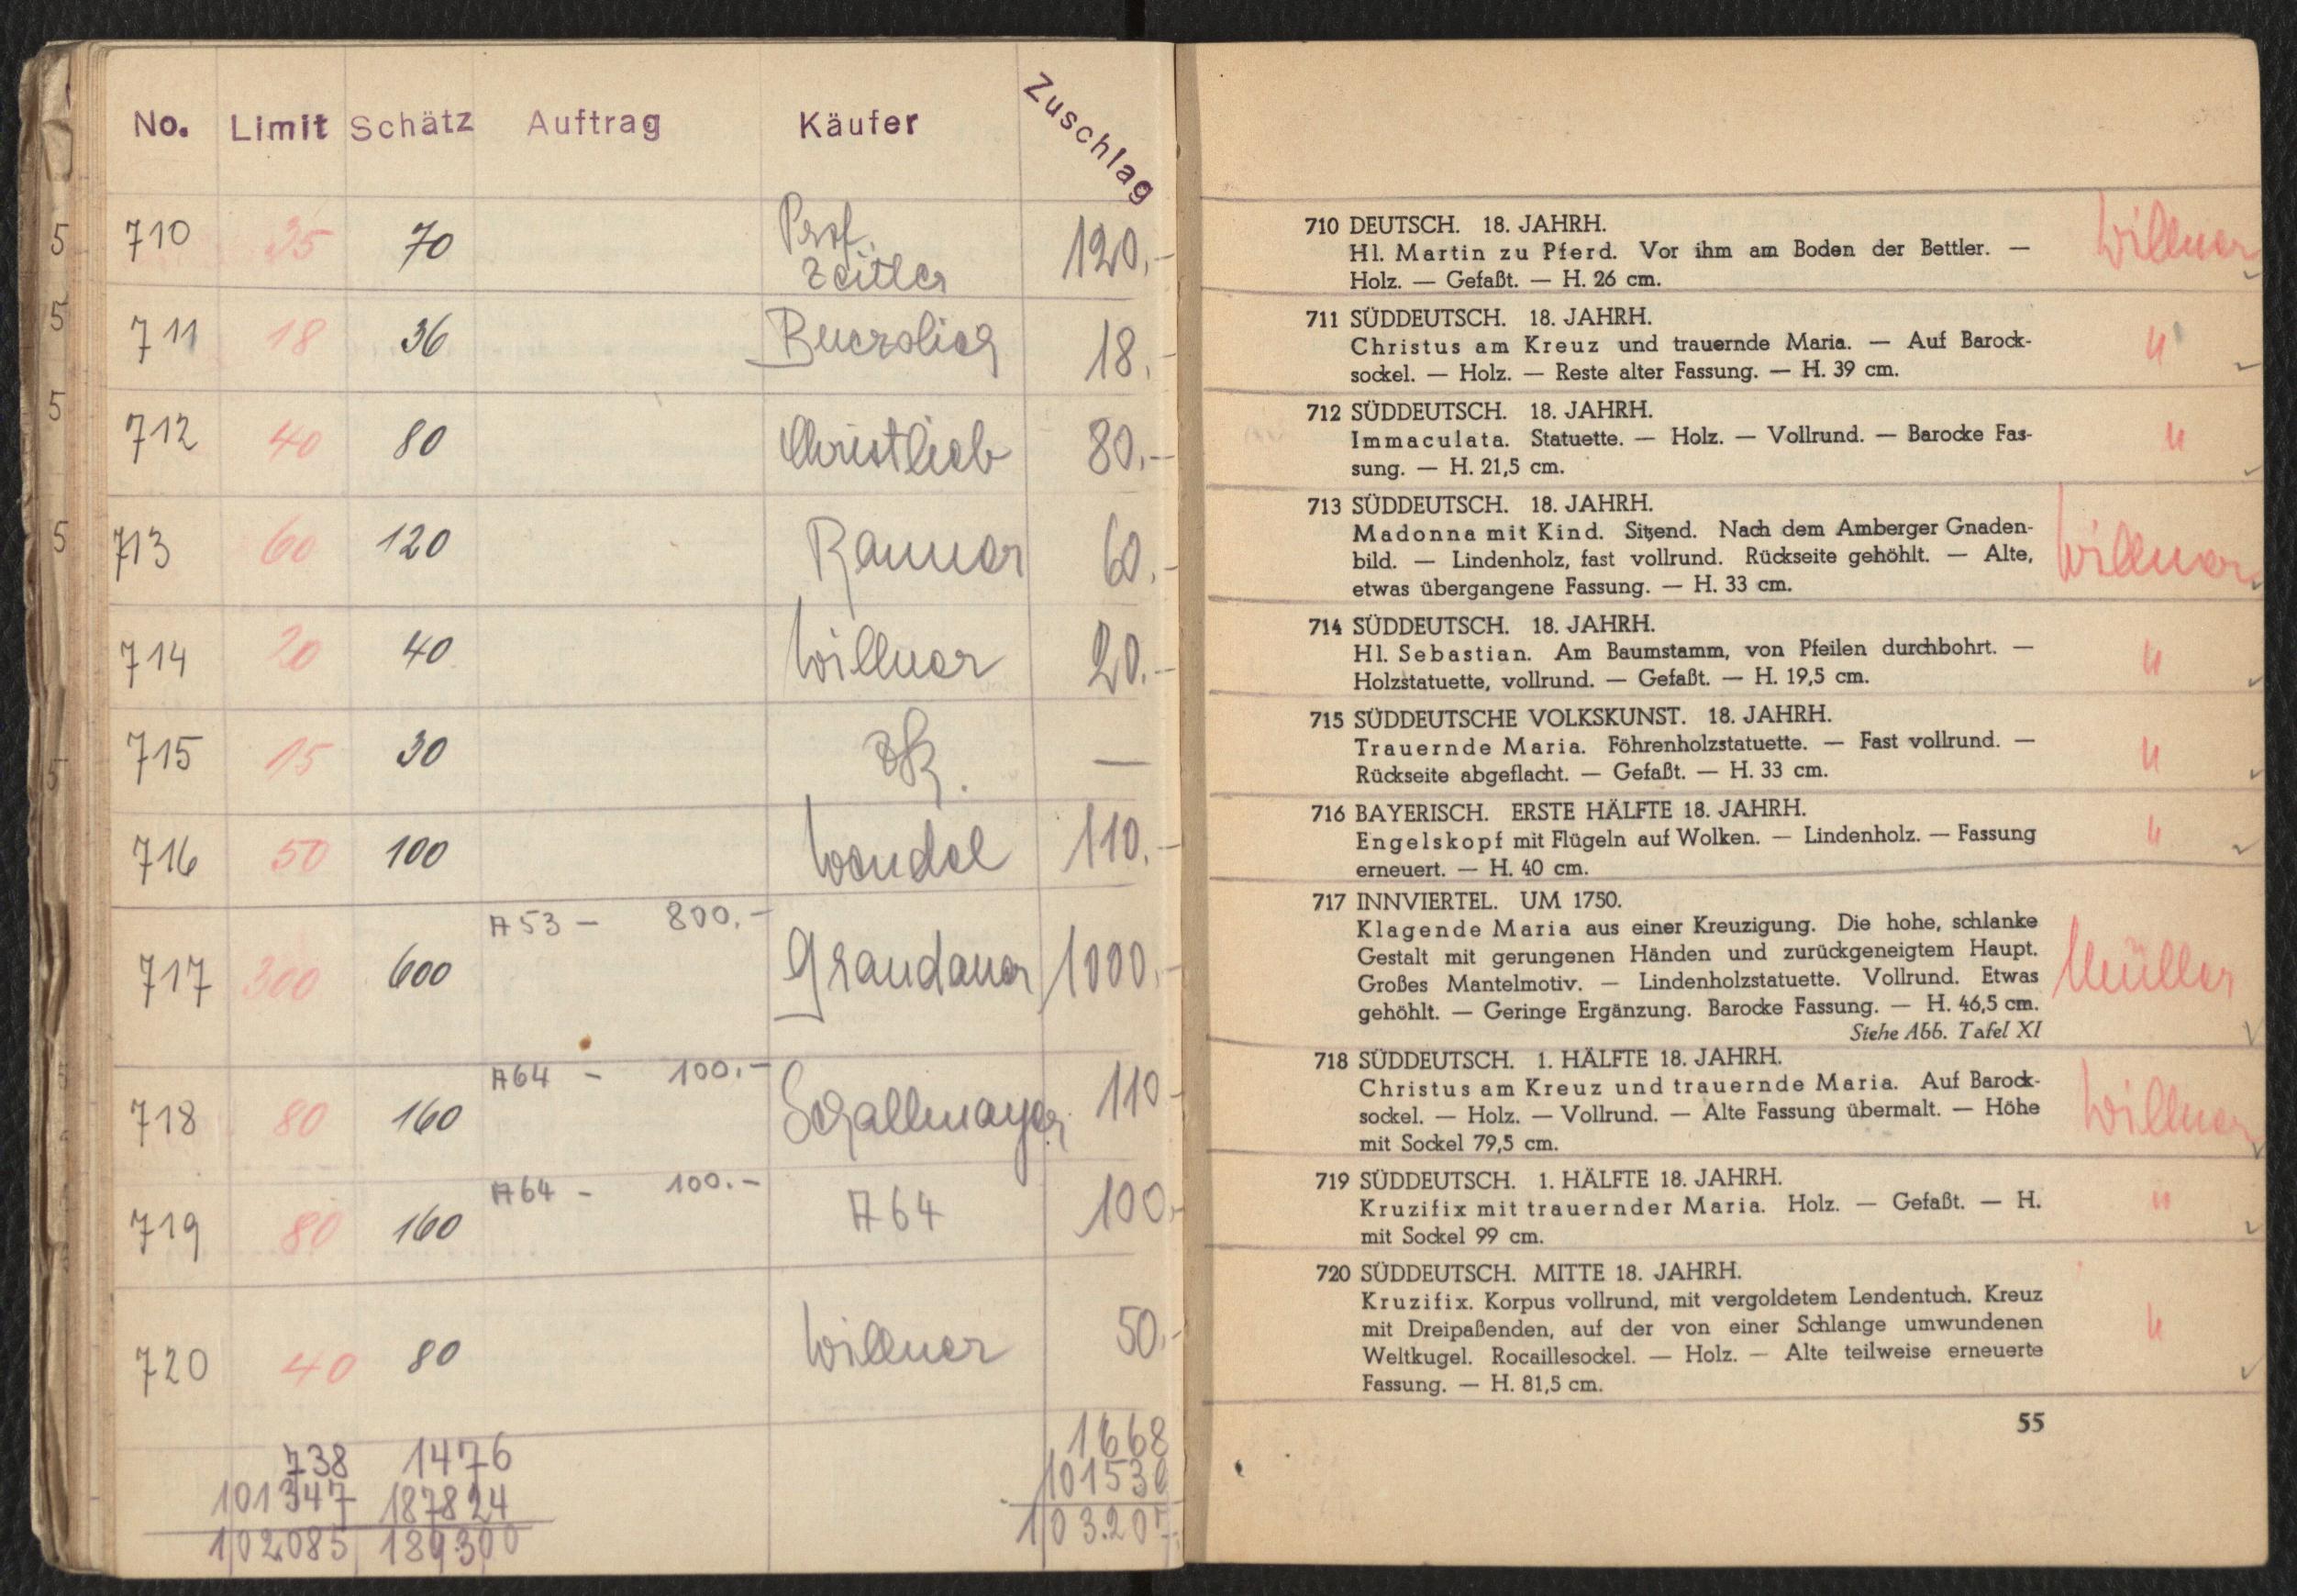 No. Limit Schätz Auftrag Käufer Zuschlag
5 710 35 70 Prof. Zeitler 120.-
5 711 18 36 18.-
5 712 40 80 Christlieb 80.-
5 713 60 120 60.-
714 20 40 Willner 20.-
5 715 15 30 —
716 50 100 Wendel 110.-
A 53 - 800.-
717 300 600 Grandauer 1000.-
A 64 - 100.-
718 80 160 Schallmayer 110.-
A 64 - 100.-
719 80 160 A 64 100.-
720 40 80 Willner 50.-
738 1476 1668
101347 187824
102085 189.300
710 DEUTSCH. 18. JAHRH.
Hl. Martin zu Pferd. Vor ihm am Boden der Bettler. — Willner
Holz. — Gefaßt. — H. 26 cm.
711 SÜDDEUTSCH. 18. JAHRH.
Christus am Kreuz und trauernde Maria. — Auf Barock- "
sockel. — Holz. — Reste alter Fassung. — H. 39 cm.
712 SÜDDEUTSCH. 18. JAHRH.
Immaculata. Statuette. — Holz. — Vollrund. — Barocke Fas- "
sung. — H. 21,5 cm.
713 SÜDDEUTSCH. 18. JAHRH.
Madonna mit Kind. Sitzend. Nach dem Amberger Gnaden-
bild. — Lindenholz, fast vollrund. Rückseite gehöhlt. — Alte, Willner
etwas übergangene Fassung. — H. 33 cm.
714 SÜDDEUTSCH. 18. JAHRH.
Hl. Sebastian. Am Baumstamm, von Pfeilen durchbohrt. — "
Holzstatuette, vollrund. — Gefaßt. — H. 19,5 cm.
715 SÜDDEUTSCHE VOLKSKUNST. 18. JAHRH.
Trauernde Maria. Föhrenholzstatuette. — Fast vollrund. — "
Rückseite abgeflacht. — Gefaßt. — H. 33 cm.
716 BAYERISCH. ERSTE HÄLFTE 18. JAHRH.
Engelskopf mit Flügeln auf Wolken. — Lindenholz. — Fassung "
erneuert. — H. 40 cm.
717 INNVIERTEL. UM 1750.
Klagende Maria aus einer Kreuzigung. Die hohe, schlanke
Gestalt mit gerungenen Händen und zurückgeneigtem Haupt.
Großes Mantelmotiv. — Lindenholzstatuette. Vollrund. Etwas Müller
gehöhlt. — Geringe Ergänzung. Barocke Fassung. — H. 46,5 cm.
Siehe Abb. Tafel XI
718 SÜDDEUTSCH. 1. HÄLFTE 18. JAHRH.
Christus am Kreuz und trauernde Maria. Auf Barock-
sockel. — Holz. — Vollrund. — Alte Fassung übermalt. — Höhe Willner
mit Sockel 79,5 cm.
719 SÜDDEUTSCH. 1. HÄLFTE 18. JAHRH.
Kruzifix mit trauernder Maria. Holz. — Gefaßt. — H. "
mit Sockel 99 cm.
720 SÜDDEUTSCH. MITTE 18. JAHRH.
Kruzifix. Korpus vollrund, mit vergoldetem Lendentuch. Kreuz
mit Dreipaßenden, auf der von einer Schlange umwundenen "
Weltkugel. Rocaillesockel. — Holz. — Alte teilweise erneuerte
Fassung. — H. 81,5 cm.
55